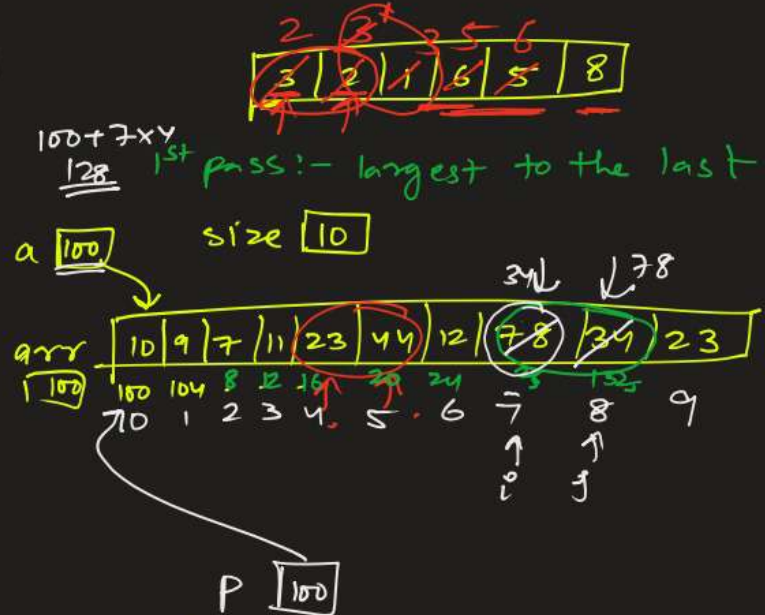 2 3 3 5 6
3 2 1 6 5 8
100+7×4
128
1st pass:- largest to the last
a 100 size 10
34 78
arr 10 9 7 11 23 44 12 78 34 23
100 100 104 8 12 16 20 24
0 1 2 3 4 5 6 7 8 9
i j
P 100